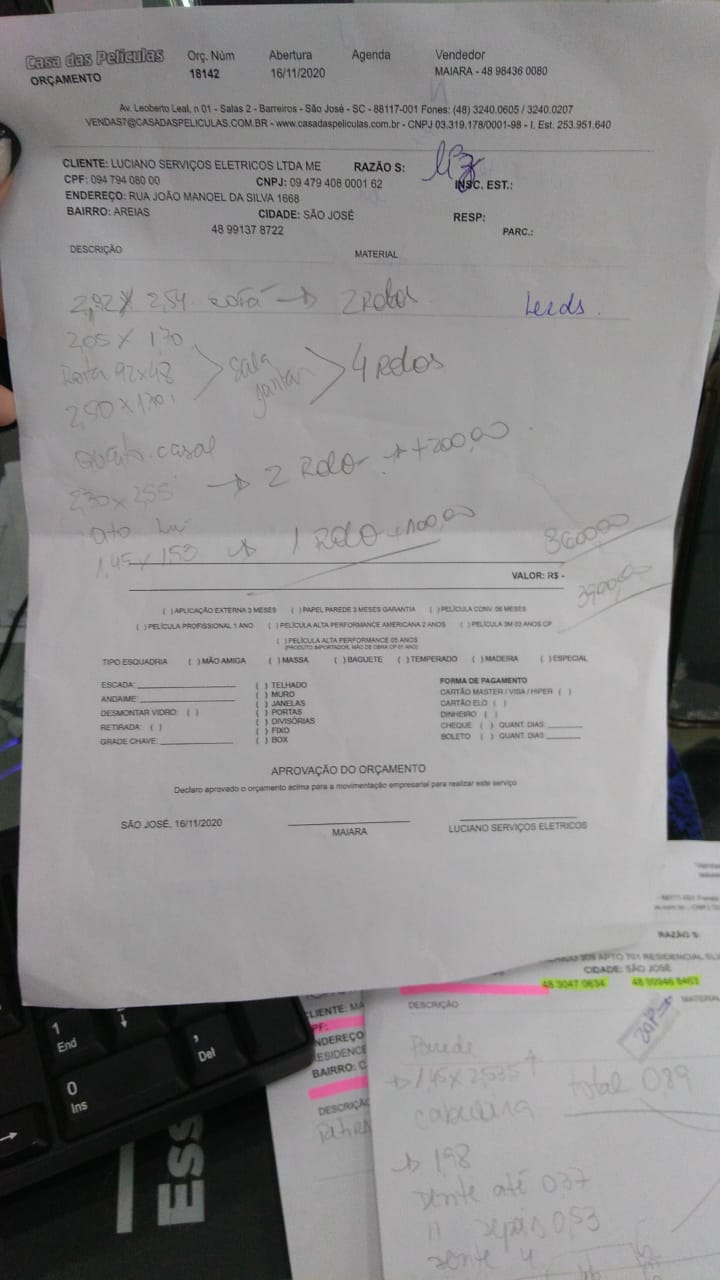 Casa das Películas Orç. Núm Abertura Agenda Vendedor
ORÇAMENTO 18142 16/11/2020 MAIARA - 48 98436 0080
Av. Leoberto Leal, n 01 - Salas 2 - Barreiros - São José - SC - 88117-001 Fones: (48) 3240.0605 / 3240.0207
VENDAS7@CASADASPELICULAS.COM.BR - www.casadaspeliculas.com.br - CNPJ 03.319.178/0001-98 - I. Est. 253.951.640
CLIENTE: LUCIANO SERVIÇOS ELETRICOS LTDA ME RAZÃO S:
CPF: 094 794 080 00 CNPJ: 09 479 408 0001 62 INSC. EST.:
ENDEREÇO: RUA JOÃO MANOEL DA SILVA 1668
BAIRRO: AREIAS CIDADE: SÃO JOSÉ RESP:
48 99137 8722 PARC.:
DESCRIÇÃO MATERIAL
2,92 X 2,54 sofá → 2 Rolos Leeds.
2,05 X 1,70
Porta 92x48 sala jantar 4 Rolos
2,50 x 1,70
Quarto casal
2,30 x 2,55 → 2 Rolo + 200,00
1,45 x 1,53 1 Rolo + 100,00
VALOR: R$ -
( ) APLICAÇÃO EXTERNA 3 MESES ( ) PAPEL PAREDE 3 MESES GARANTIA ( ) PELÍCULA CONV. 06 MESES
( ) PELÍCULA PROFISSIONAL 1 ANO ( ) PELÍCULA ALTA PERFORMANCE AMERICANA 2 ANOS ( ) PELÍCULA 3M 03 ANOS CP
( ) PELÍCULA ALTA PERFORMANCE 05 ANOS
(PRODUTO IMPORTADOR, MÃO DE OBRA CP 01 ANO)
TIPO ESQUADRIA ( ) MÃO AMIGA ( ) MASSA ( ) BAGUETE ( ) TEMPERADO ( ) MADEIRA ( ) ESPECIAL
ESCADA: ( ) TELHADO FORMA DE PAGAMENTO
ANDAIME: ( ) MURO CARTÃO MASTER / VISA / HIPER ( )
( ) JANELAS CARTÃO ELO ( )
DESMONTAR VIDRO: ( ) ( ) PORTAS DINHEIRO ( )
RETIRADA: ( ) ( ) DIVISÓRIAS CHEQUE ( ) QUANT. DIAS:
( ) FIXO BOLETO ( ) QUANT. DIAS:
GRADE CHAVE: ( ) BOX
APROVAÇÃO DO ORÇAMENTO
Declaro aprovado o orçamento acima para a movimentação empresarial para realizar este serviço
SÃO JOSÉ, 16/11/2020 MAIARA LUCIANO SERVIÇOS ELETRICOS
RAZÃO S:
APTO 701 RESIDENCIAL
CIDADE: SÃO JOSÉ
48 3047 0634
DESCRIÇÃO
Parede
total 0,89
cabeceira
→ 1,98
sente até 0,37
11 depois 0,53
sente 4
CLIENTE: MA
CPF:
ENDEREÇO
RESIDENCE
BAIRRO: C
DESCRIÇÃO
1
End
0
Ins
,
Del
ESS